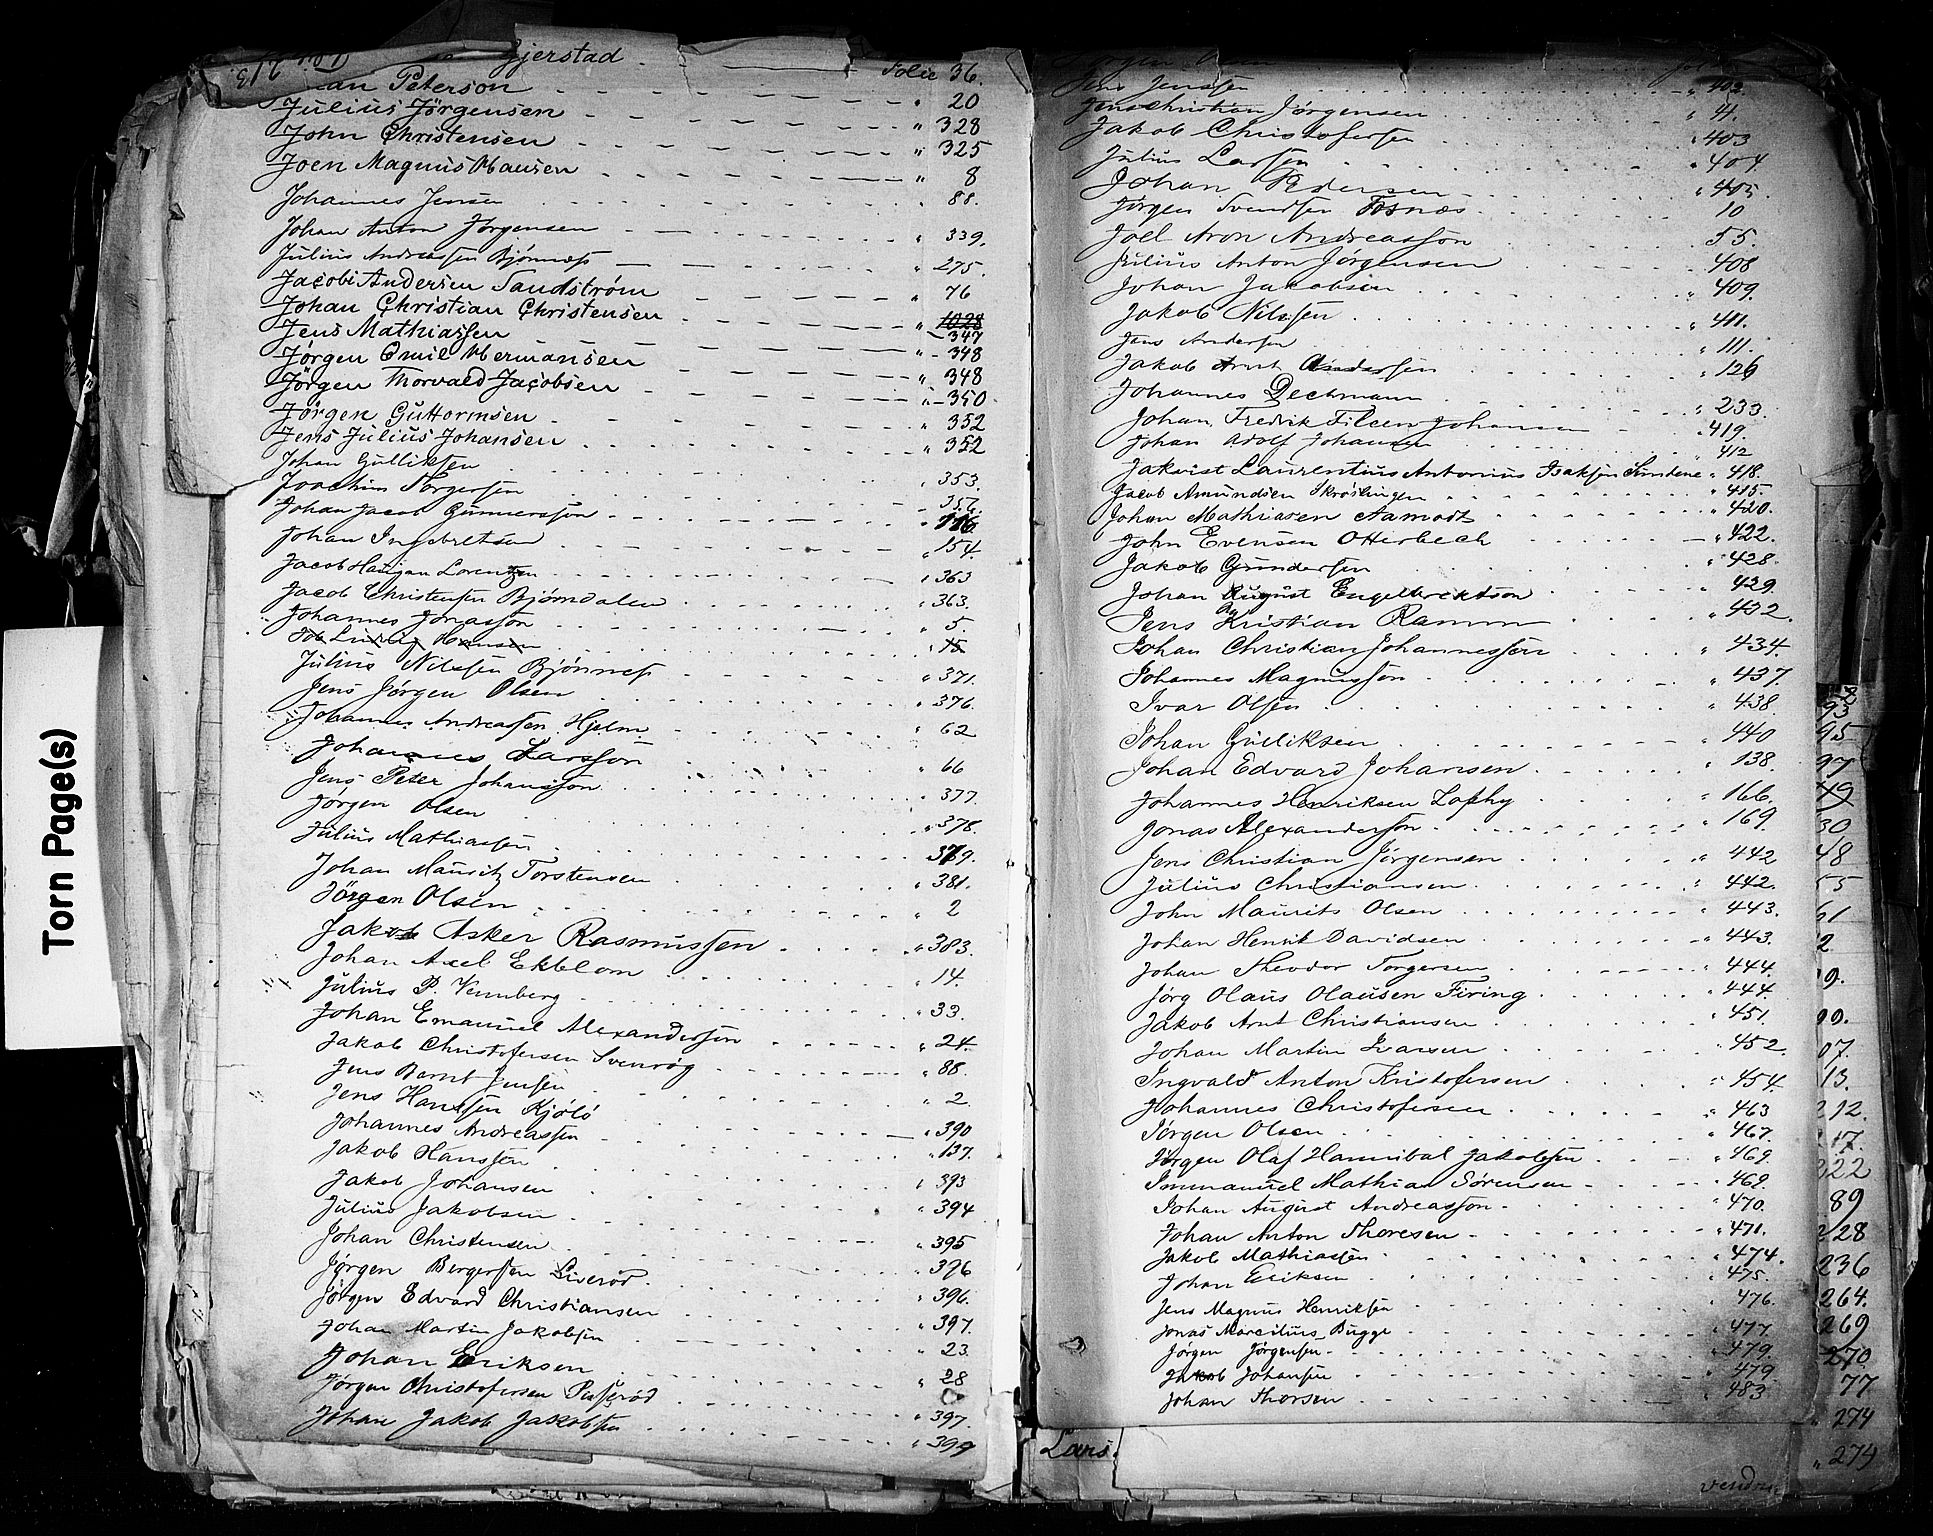 Gjerstad Folie 36.
Peterson " 20
Julius Jörgensen " 328
John Christensen " 325
Joen Magnus Hansen " 8
Johannes Jensen " 88.
Johan Anton Jörgensen " 339.
Julius Andreassen Bjönnes " 275.
Jacob Andersen Sandström " 76
Johan Christian Christensen " 1028
Jens Mathiassen 347
Jörgen Emil Hermansen " 348
Jörgen Thorvald Jacobsen " 348
Jörgen Guttormsen " 350
Jens Julius Johansen " 352
Johan Gulliksen " 352
Joachim Torgersen " 353.
Johan Jacob Gunnersson 357.
Johan Ingebretsen " 116.
Jacob Lorentzen " 154.
Jacob Christensen Bjørndalen " 363
Johannes Jonasson " 363.
Job Ludvig Hansen " 5
Julius Nilssen Bjønnes " 15
Jens Jörgen Olsen " 371.
Johannes Andreassen Hjelm " 376.
Johannes Larsson " 62
Jens Peter Johansson " 66
Jörgen Olsen " 377.
Julius Mathiassen " 378.
Johan Mauritz Torstensen 379.
Jörgen Olsen " 381.
Jakob Asker Rasmussen " 2
Johan Axel Ekblom " 383.
Julius P. Vennberg " 14.
Johan Emanuel Alexandersen " 33.
Jakob Christofersen Svenrög " 24.
Jens Bernt Jensen " 88.
Jens Hanssen Kjölö " 2.
Johannes Andreassen " 390
Jakob Hanssen " 137.
Jakob Johansen " 393
Julius Jakobsen " 394
Johan Christensen " 395
Jørgen Bergersen Liverød " 396
Jørgen Edvard Christiansen " 396.
Johan Martin Jakobsen " 397.
Johan Eriksen " 23.
Jörgen Christofersen " 28
Johan Jakob Jakobsen " 397.
" 399
Torn Page(s)
Jens Jenssen " 403.
Jens Christian Jörgensen " 4.
Jakob Christofersen " 403
Julius Larsen " 404.
Johan Pedersen " 405
Jörgen Svendsen Fosnæs 10
Joel Aron Andreasson 55.
Julius Anton Jörgensen 408
Johan Jacobsen " 409.
Jakob Nilssen " 411.
Jens Andersen " 111.
Jakob Arnt Andersen " 126
Johannes Dechmann " 233.
Johan Fredrik Johansen " 419.
Johan Adolf Johansen " 412
Jakvist Laurentius Antonius Isaksen " 418.
Jacob Amundsen " 415.
Johan Mathiasen Aamodt " 420.
John Evensen Otterbech " 422.
Jakob Gundersen " 428.
Johan August Engelbrektson " 429.
Jens Kristian Ramm " 432.
Johan Christian Johannessen " 434.
Johannes Magnusson " 437.
Ivar Olsen " 438
Johan Gulliksen " 440
Johan Edvard Johansen " 138.
Johannes Henriksen Lophy " 166.
Jonas Alexanderson " 169.
Jens Christian Jörgensen " 442
Julius Christiansen " 442.
John Maurits Olsen " 443.
Johan Henrik Davidsen " 443.
Johan Theodor Torgersen " 444.
Jörg Olaus Olausen Firing " 444.
Jakob Arnt Christiansen " 451.
Johan Martin Ivarsen " 452.
Ingvald Anton Kristofersen " 454.
Johannes Christofersen " 463
Jørgen Olsen " 467.
Jörgen Olaf Hannibal Jakobsen " 469.
Immanuel Mathias Sörensen " 469.
Johan August Andreasson " 470.
Johan Anton Thoresen " 471.
Jakob Mathiassen " 474.
Johan Eriksen " 475.
Jens Magnus Henriksen " 476.
Jonas Marcilius Bugge " 477
Jörgen Jörgensen " 479.
Jakob Johansen " 479
Johan Thorsen " 483
95
97
49
30
48
55
61
2
9.
90.
07.
13.
212.
222
89
228
236
264.
269
270
77
" 274
" 274
Lars.